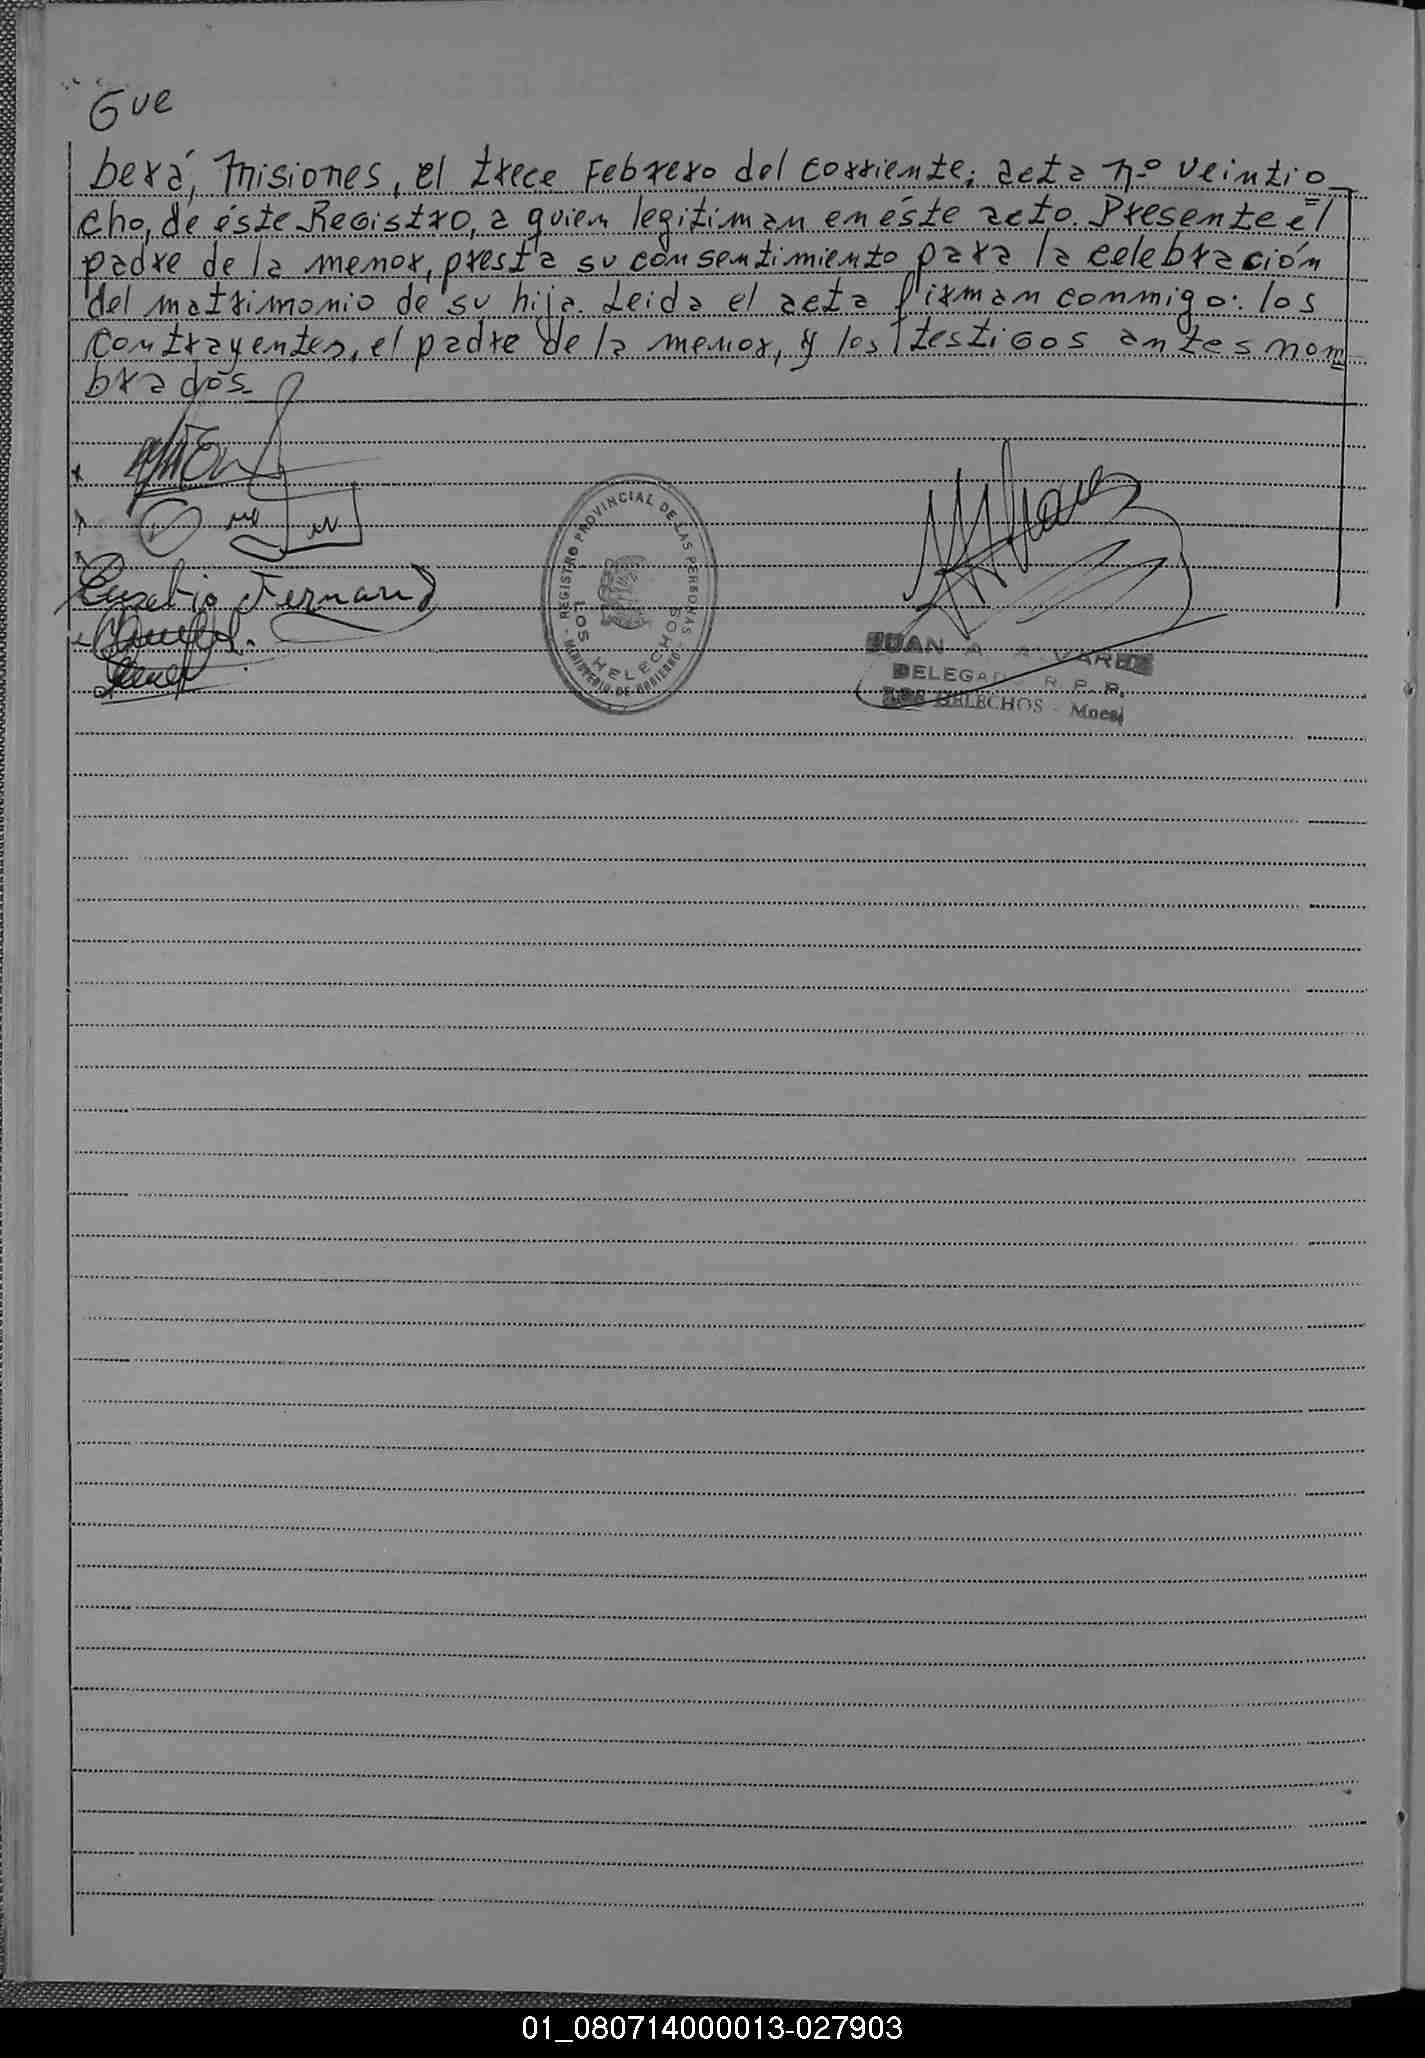 Gue
berá, Misiones, el trece Febrero del corriente; acta nº veintio
cho, de éste Registro, a quien legitiman en éste acto. Presente el
padre de la menor, presta su consentimiento para la celebración
del matrimonio de su hija. Leida el acta firman conmigo: los
contrayentes, el padre de la menor, y los testigos antes nom
brados.
Eusebio Fernand
REGISTRO PROVINCIAL DE LAS PERSONAS
LOS HELECHOS
- MINISTERIO DE GOBIERNO -
JUAN A. ALVAREZ
DELEGADO R. P. P.
LOS HELECHOS - Mnes
01_080714000013-027903